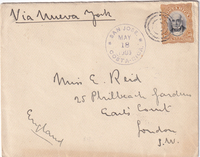 Via Nueva York
SAN JOSE
MAR
18
COSTA RICA
Miss E. Reid
25 Philbeach Gardens
Earl's Court
London
S.W.
England